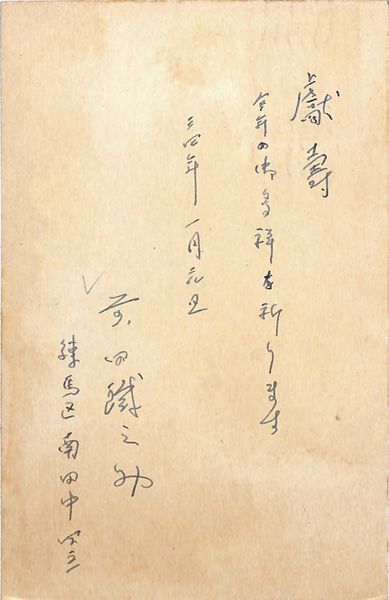 獻壽
今年の御多祥を祈ります
三四年一月元旦
前田鐵之助
練馬区南田中四五一